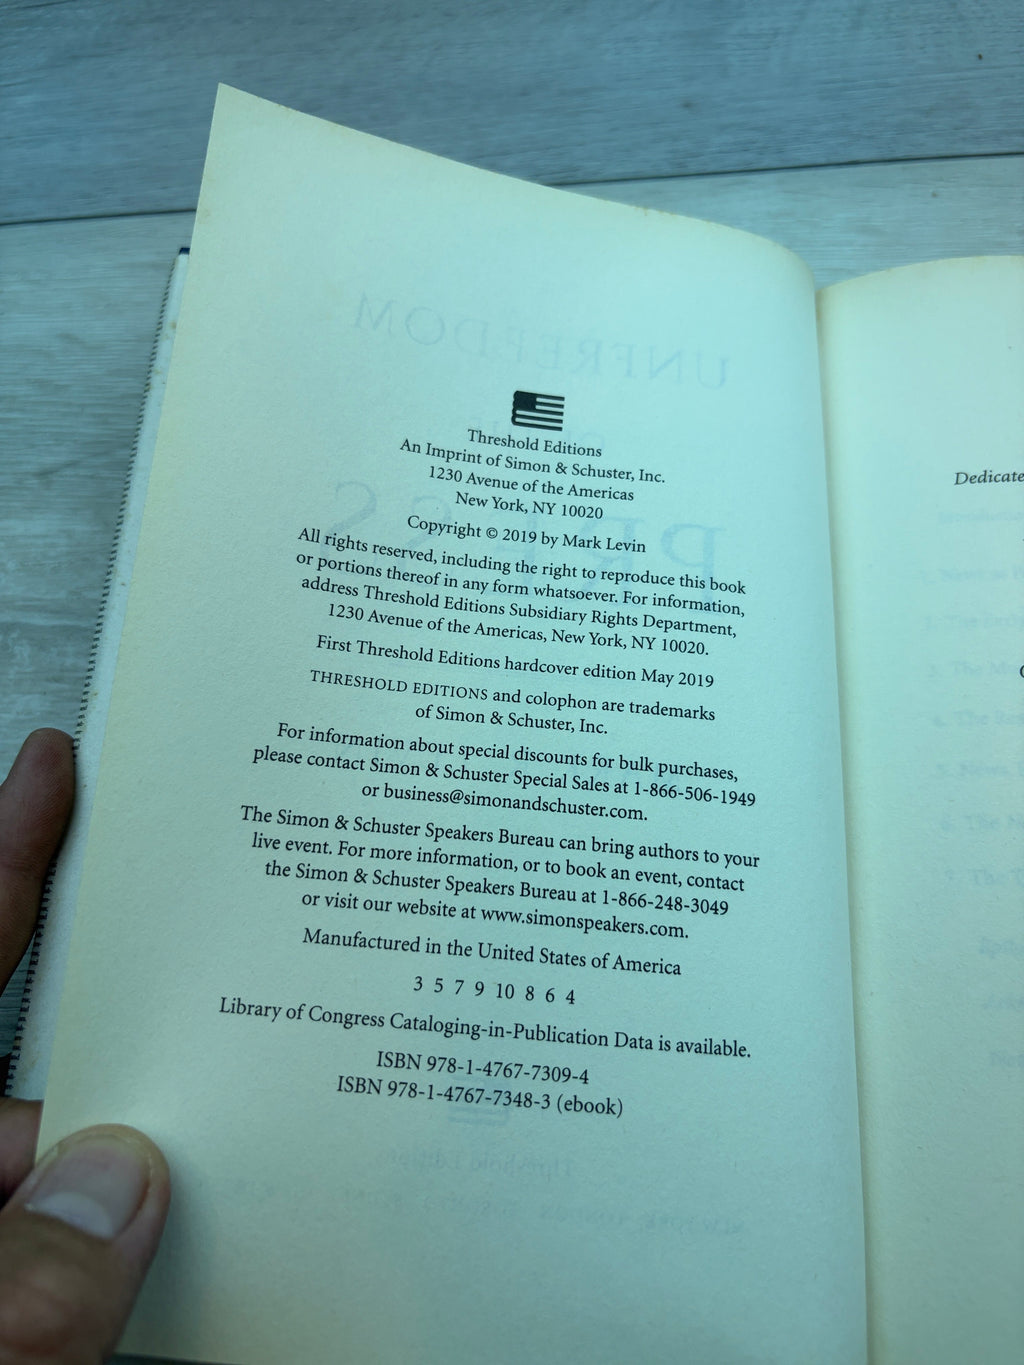 Threshold Editions
An Imprint of Simon & Schuster, Inc.
1230 Avenue of the Americas
New York, NY 10020
Copyright © 2019 by Mark Levin
All rights reserved, including the right to reproduce this book
or portions thereof in any form whatsoever. For information,
address Threshold Editions Subsidiary Rights Department,
1230 Avenue of the Americas, New York, NY 10020.
First Threshold Editions hardcover edition May 2019
THRESHOLD EDITIONS and colophon are trademarks
of Simon & Schuster, Inc.
For information about special discounts for bulk purchases,
please contact Simon & Schuster Special Sales at 1-866-506-1949
or business@simonandschuster.com.
The Simon & Schuster Speakers Bureau can bring authors to your
live event. For more information, or to book an event, contact
the Simon & Schuster Speakers Bureau at 1-866-248-3049
or visit our website at www.simonspeakers.com.
Manufactured in the United States of America
3 5 7 9 10 8 6 4
Library of Congress Cataloging-in-Publication Data is available.
ISBN 978-1-4767-7309-4
ISBN 978-1-4767-7348-3 (ebook)
Dedicate